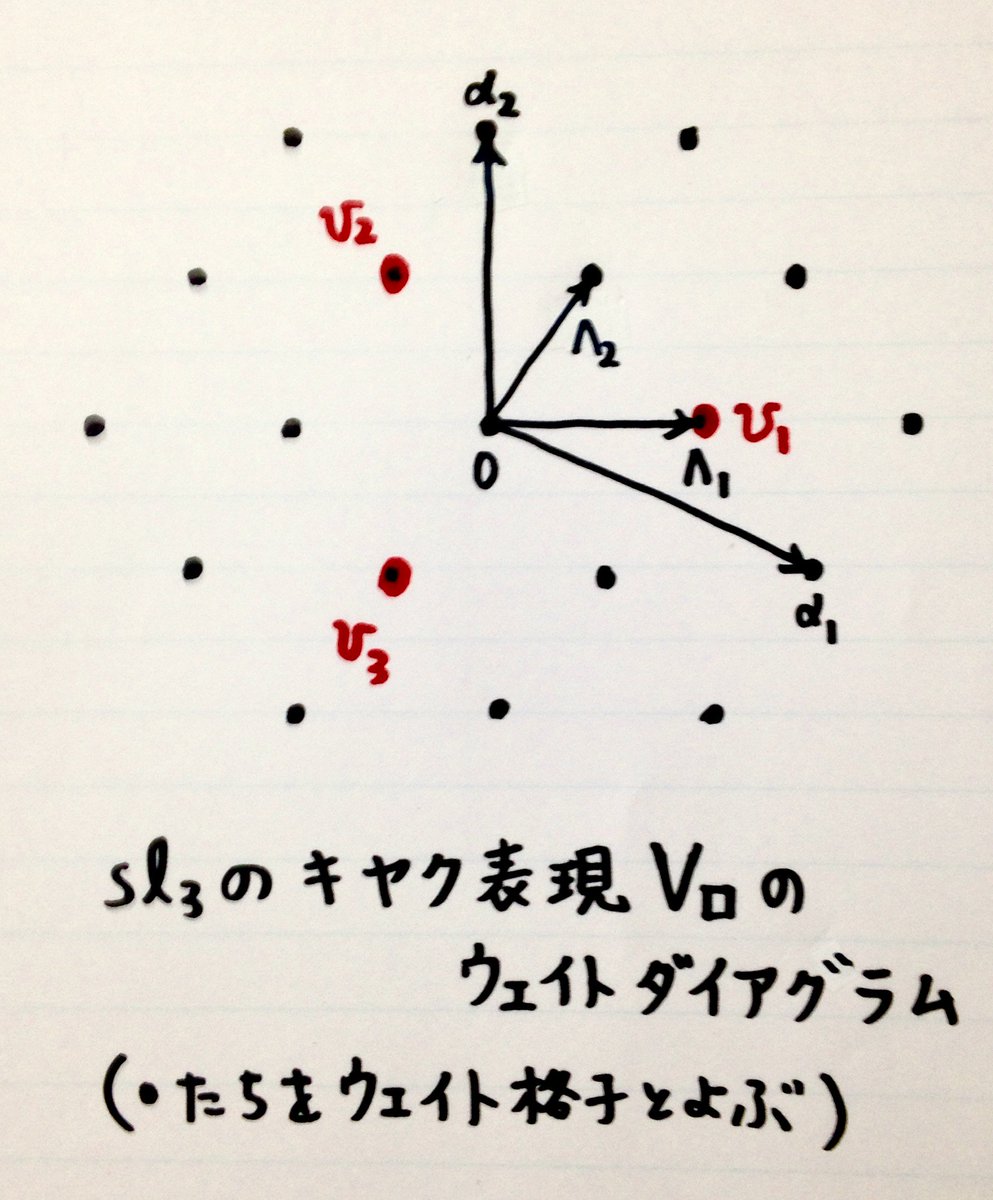 α₂
v₂
Λ₂
v₁
0
Λ₁
α₁
v₃
sl₃のキヤク表現V□の
ウェイトダイアグラム
(•たちをウェイト格子とよぶ)